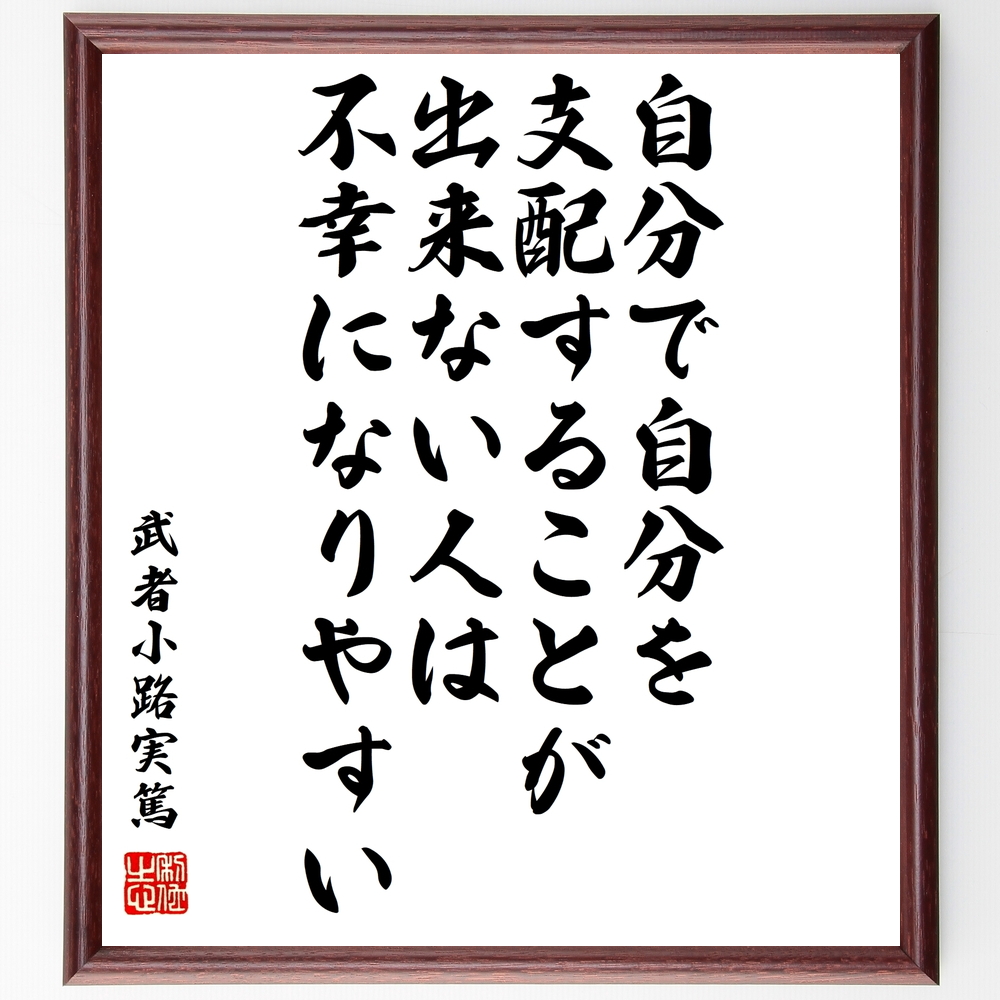 自分で自分を
支配することが
出来ない人は
不幸になりやすい
武者小路実篤